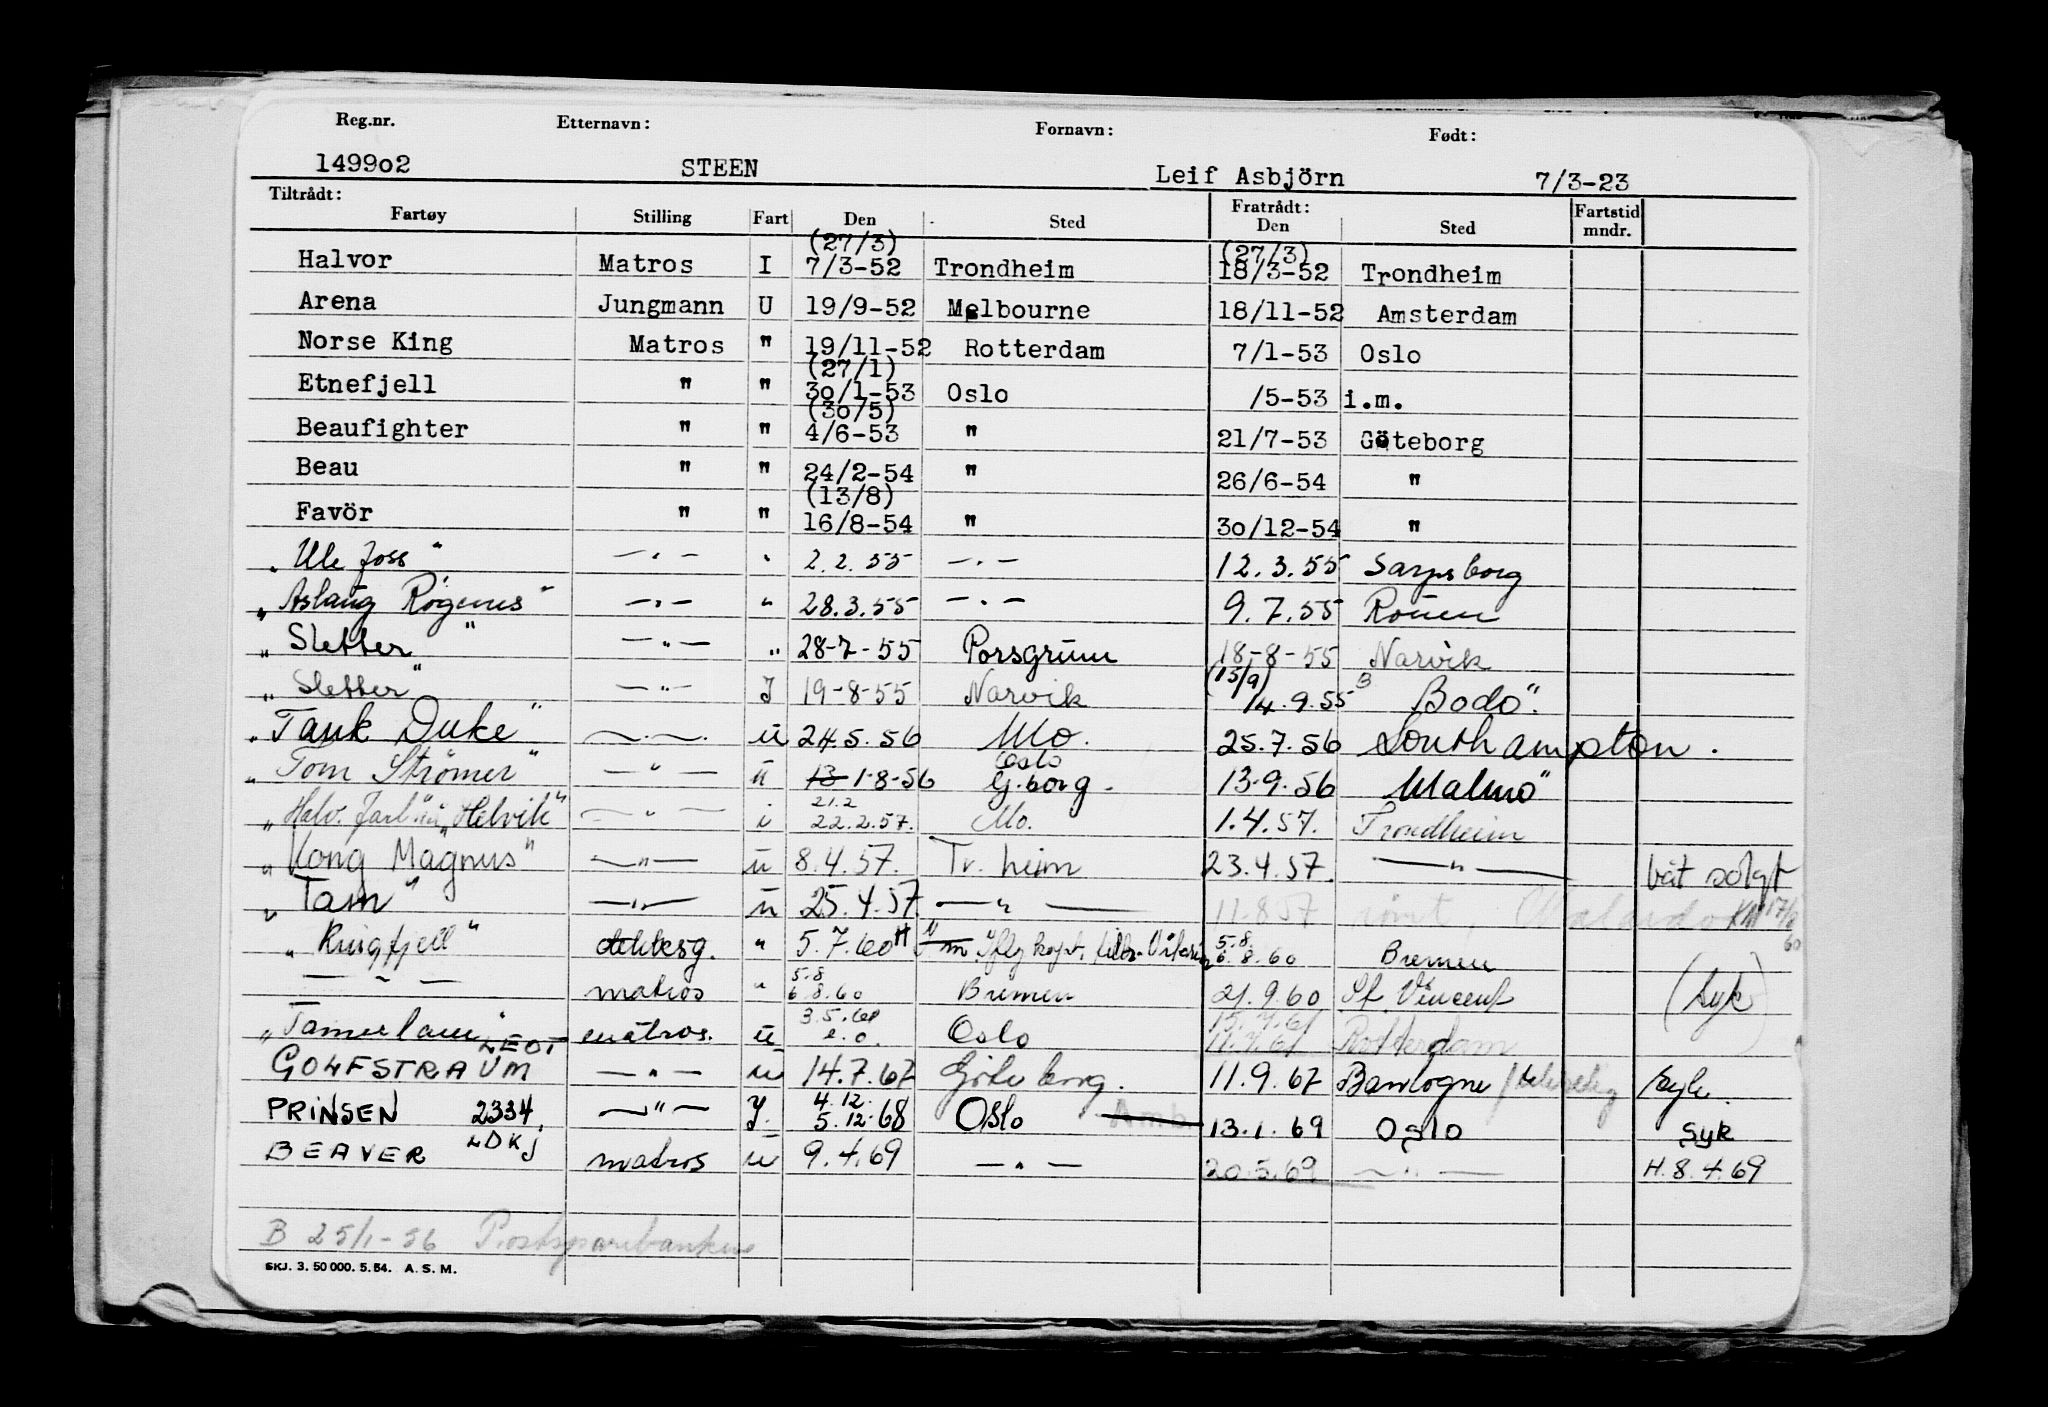 Reg.nr. Etternavn: Fornavn: Født:
149902 STEEN Leif Asbjörn 7/3-23
Tiltrådt: Fratrådt: Fartstid
Fartøy Stilling Fart Den Sted Den Sted mndr.
(27/3) (27/3)
Halvor Matros I 7/3-52 Trondheim 18/3-52 Trondheim
Arena Jungmann U 19/9-52 Melbourne 18/11-52 Amsterdam
Norse King Matros " 19/11-52 Rotterdam 7/1-53 Oslo
(27/1)
Etnefjell " " 30/1-53 Oslo /5-53 i.m.
(30/5)
Beaufighter " " 4/6-53 " 21/7-53 Göteborg
Beau " " 24/2-54 " 26/6-54 "
(13/8)
Favör " " 16/8-54 " 30/12-54 "
"Ule foss" — " — " 2.2.55 — " — 12.3.55 Sarpsborg
"Aslaug Rögenes" — " — " 28.3.55 — " — 9.7.55 Rouen
"Sletter" — " — " 28-7-55 Porsgrunn 18-8-55 Narvik
(15/9) B
"Sletter" — " — I 19-8-55 Narvik 14.9.55 Bodö.
"Tank Duke" — " — u 24.5.56 Mo. 25.7.56 Southampton.
Oslo
"Tom Strömer" — " — u 13 1-8-56 G.borg. 13.9.56 Malmö
21.2
"Halv. Jarl" "Helvik" — " — i 22.2.57. Mo. 1.4.57. Trondheim
"Kong Magnus" — " — u 8.4.57. Tr.heim 23.4.57. — " — båt solgt
"Tam" — " — u 25.4.57. — " — 11.8.57 römt, KM 17/8 60
5.8.
"Ringfjell" dekksg. " 5.7.60 H 6.8.60 Bremen
5.8
— " — matros " 6.8.60 Bremen 21.9.60 St Vincent (syk)
3.5.61 15.7.61
"Tamerlane" matros. u e.o. Oslo 11.7.61 Rotterdam
LEOT
GOLFSTRAUM — " — u 14.7.67 Göteborg. 11.9.67 Boulogne syk.
4.12.
PRINSEN 2334. — " — I. 5.12.68 Oslo 13.1.69 Oslo syk
LDKJ
BEAVER matros u 9.4.69 — " — 20.5.69 — " — H. 8.4.69
B 25/1-56 Postsparebanken
SKJ. 3. 50 000. 5. 54. A. S. M.